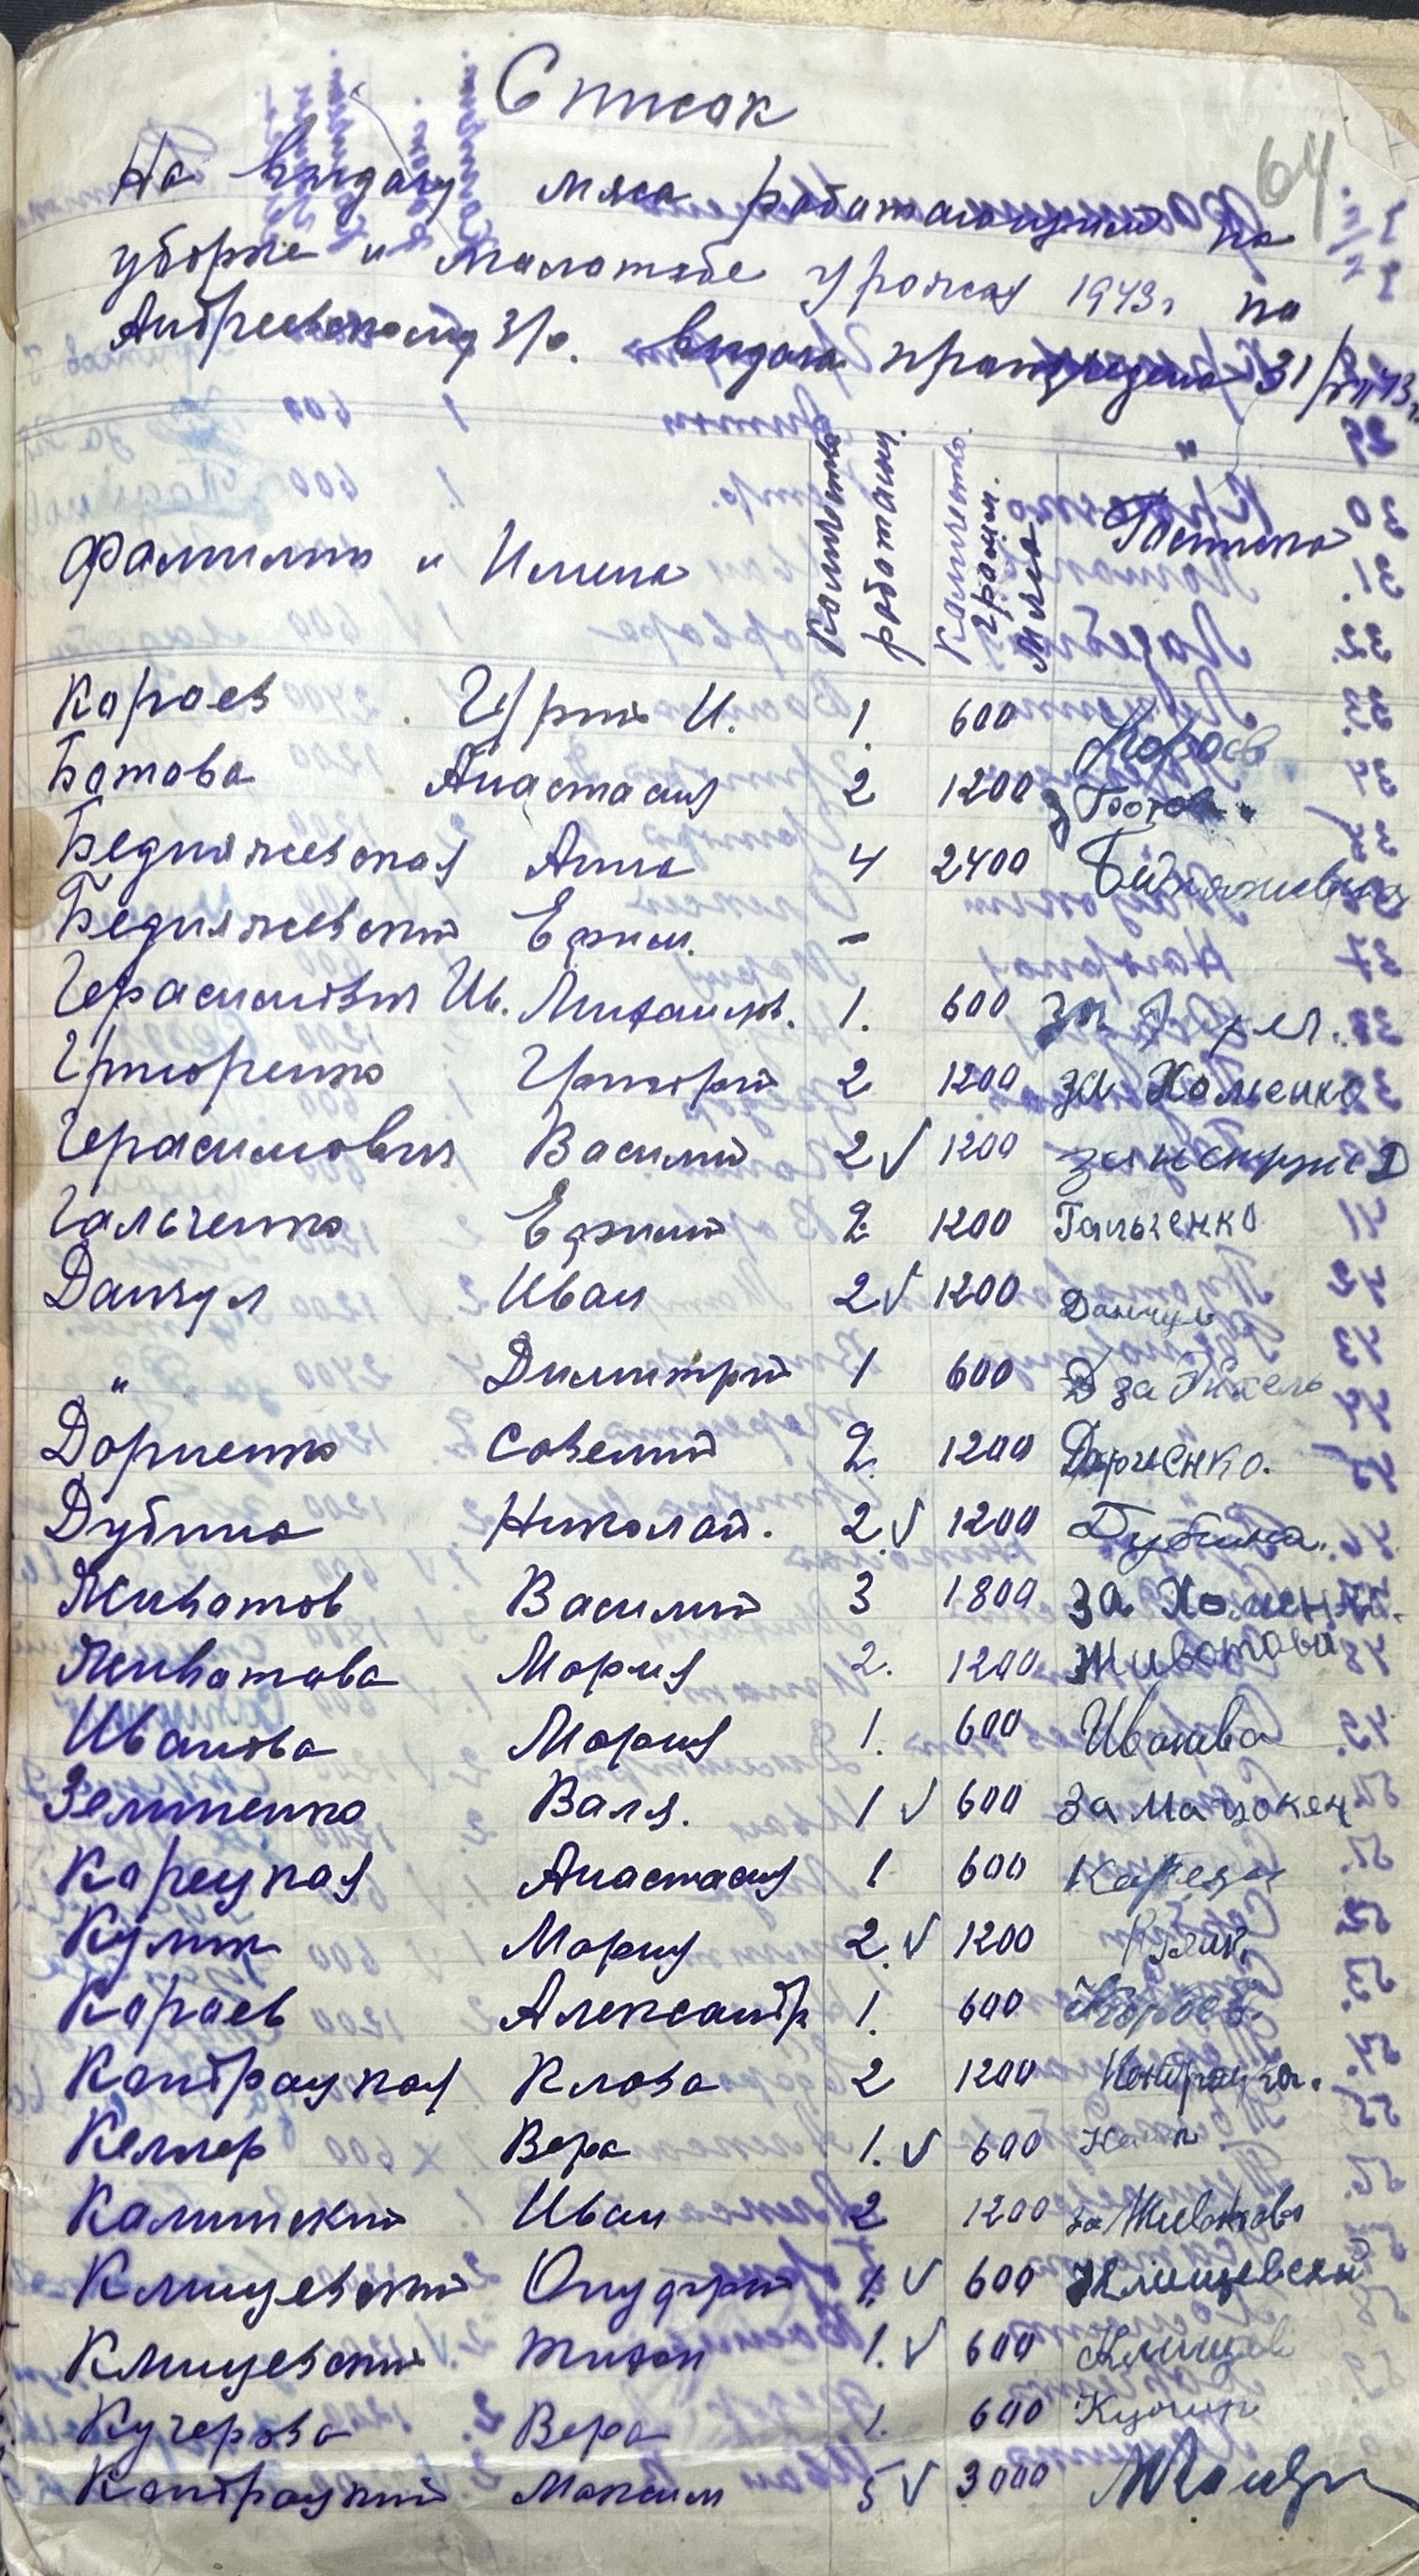 64
Список
На выдачу мяса работающим на
уборке и молотьбе урожая 1943г по
Андреевскому З/о. выдача произведена 31/VII 43г.
Фамилия и Имена Количество работающ. Количество грамм. Мяса Роспись
Кораев И. 1. 600 Кораев
Ботова Анастасия 2 1200 з Ботов
Бедняжевская Анна 4 2400 Бедняжевская
Бедняжевский Ефим. -
Герасимович Ив. Михайлов. 1. 600 за
Григоренко Григорий 2 1200 за Хоменко
Герасимович Василий 2 √ 1200 за
Гальченко Ефимий 2 1200 Гальченко
Данчул Иван 2 √ 1200 Данчул
" Димитрий 1 600 за
Дориенко Савелий 2. 1200 Дориенко.
Дубина Николай. 2. √ 1200 Дубина.
Животов Василий 3 1800 за Хоменко.
Животова Мория 2. 1200 Животова
Иванова Мория 1. 600 Иванова
Зелинская Валя. 1 √ 600 за
Корецкая Анастасия 1 600 Карецкая
Кулик Мория 2. √ 1200
Кораев Александр 1. 600 Кораев.
Кондрацкая Клава 2 1200 Кондрацкая.
Келлер Вера 1. √ 600
Калинский Иван 2 1200 за Животова
Клищевский Онуфрий 1. √ 600 Клищевский
Клищевский Тихон 1. √ 600 Клищев
Кучерова Вера 1. 600
Кондрацкий Максим 5 √ 3000